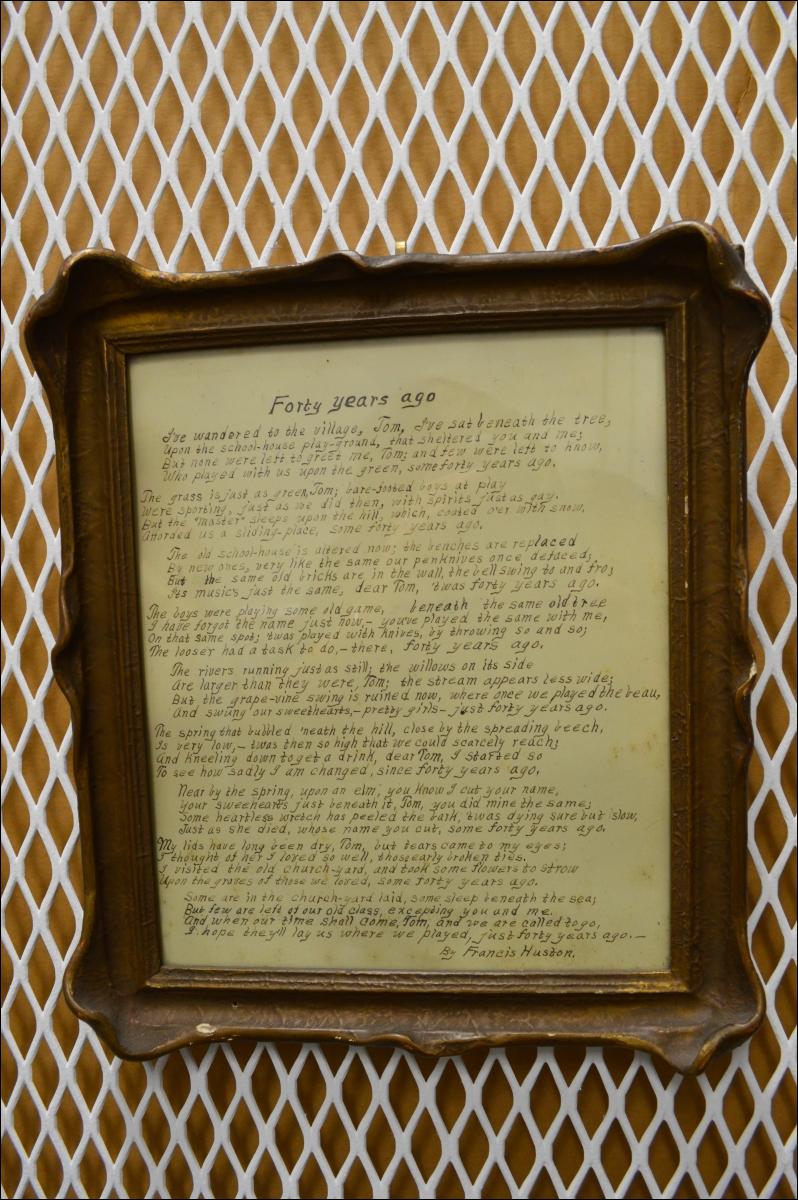 Forty years ago
I've wandered to the village, Tom, I've sat beneath the tree,
Upon the school-house play-ground, that sheltered you and me;
But none were left to greet me, Tom; and few were left to know,
Who played with us upon the green, some forty years ago.
The grass is just as green, Tom; bare-footed boys at play
Were sporting, just as we did then, with spirits just as gay.
But the "master" sleeps upon the hill, which, coated o'er with snow,
Afforded us a sliding-place, some forty years ago.
The old school-house is altered now; the benches are replaced
By new ones, very like the same our penknives once defaced;
But the same old bricks are in the wall, the bell swing to and fro;
Its music's just the same, dear Tom, 'twas forty years ago.
The boys were playing some old game, beneath the same old tree
I have forgot the name just now, – you've played the same with me,
On that same spot; 'twas played with knives, by throwing so and so;
The looser had a task to do, – there, forty years ago.
The rivers running just as still; the willows on its side
Are larger than they were, Tom; the stream appears less wide;
But the grape-vine swing is ruined now, where once we played the beau,
And swung our sweethearts, – pretty girls – just forty years ago.
The spring that bubbled 'neath the hill, close by the spreading beech,
Is very low, – twas then so high that we could scarcely reach;
And kneeling down to get a drink, dear Tom, I started so
To see how sadly I am changed, since forty years ago,
Near by the spring, upon an elm, you know I cut your name,
Your sweehearts just beneath it, Tom, you did mine the same;
Some heartless wretch has peeled the bark, 'twas dying sure but slow,
Just as she died, whose name you cut, some forty years ago.
My lids have long been dry, Tom, but tears came to my eyes;
I thought of her I loved so well, those early broken ties.
I visited the old church-yard, and took some flowers to strow
Upon the graves of those we loved, some forty years ago.
Some are in the church-yard laid, some sleep beneath the sea;
But few are left of our old class, excepting you and me.
And when our time shall come, Tom, and we are called to go,
I hope they'll lay us where we played, just forty years ago. –
By Francis Huston.